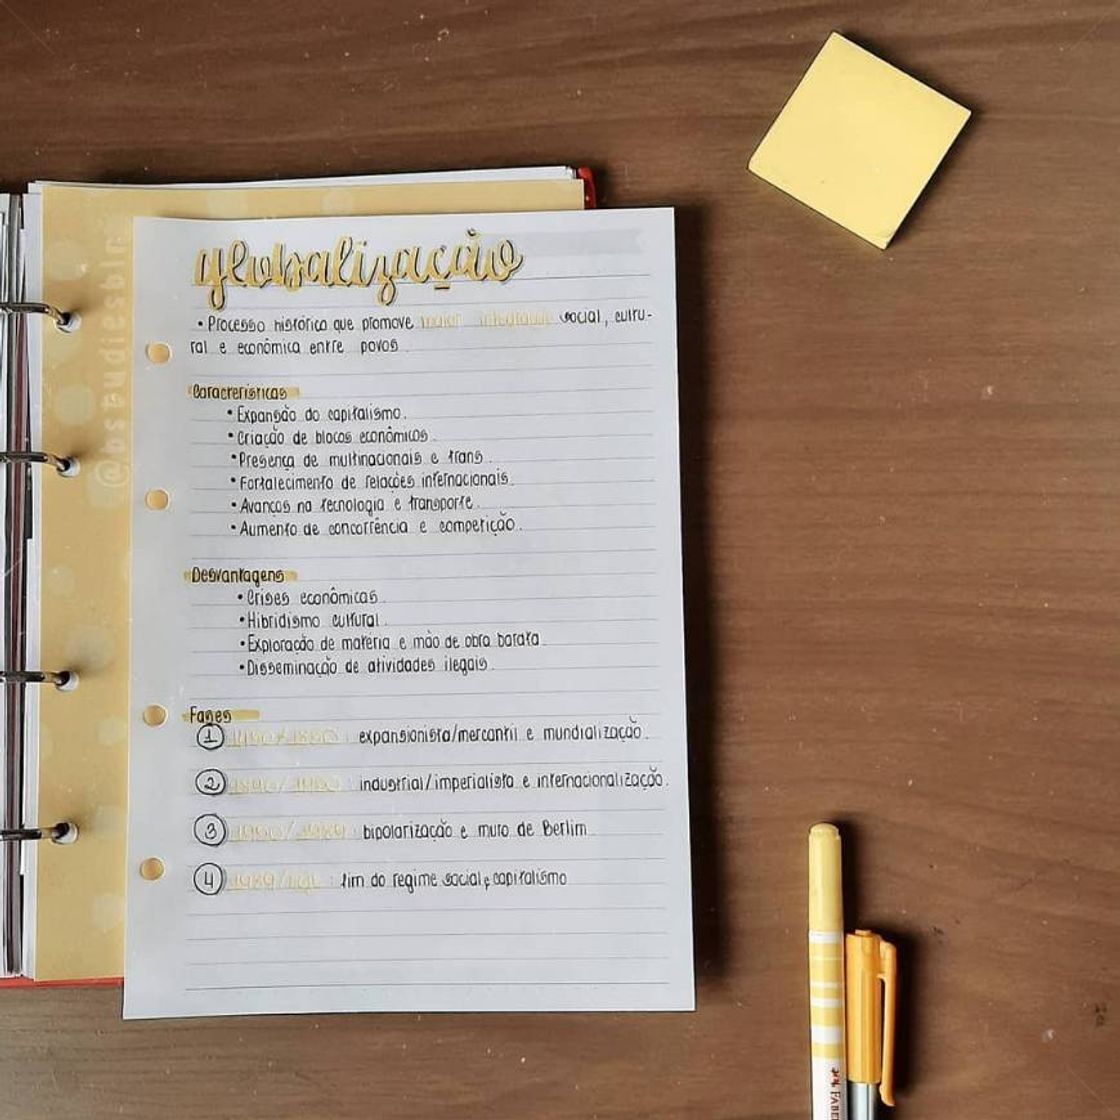 globalização
• Processo histórico que promove maior integração social, cultu-
ral e econômica entre povos.
Características
• Expansão do capitalismo.
• Criação de blocos econômicos.
• Presença de multinacionais e trans.
• Fortalecimento de relações internacionais.
• Avanços na tecnologia e transporte.
• Aumento de concorrência e competição.
Desvantagens
• Crises econômicas.
• Hibridismo cultural.
• Exploração de matéria e mão de obra barata
• Disseminação de atividades ilegais.
Fases
1 : expansionista/mercantil e mundialização.
2 : industrial/imperialista e internacionalização.
3 : bipolarização e muro de Berlim
4 1989/ : fim do regime social e capitalismo
FABER